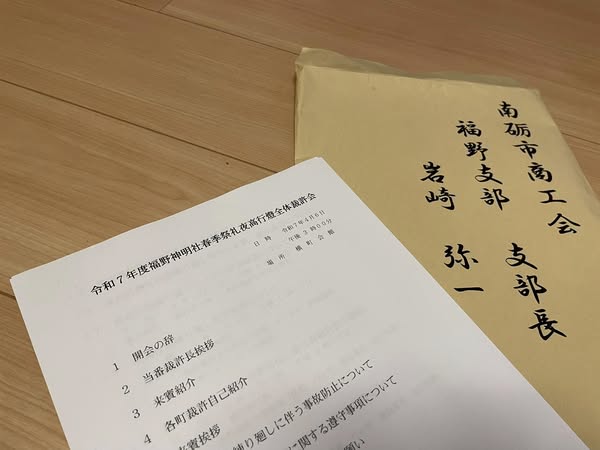 令和７年度福野神明社春季祭礼夜高行燈全体裁許会
日時　令和７年４月６日
午後３時００分
場所　横町会館
1　開会の辞
2　当番裁許長挨拶
3　来賓紹介
4　各町裁許自己紹介
来賓挨拶
練り廻しに伴う事故防止について
に関する遵守事項について
願い
南砺市商工会
福野支部　支部長
岩崎　弥一